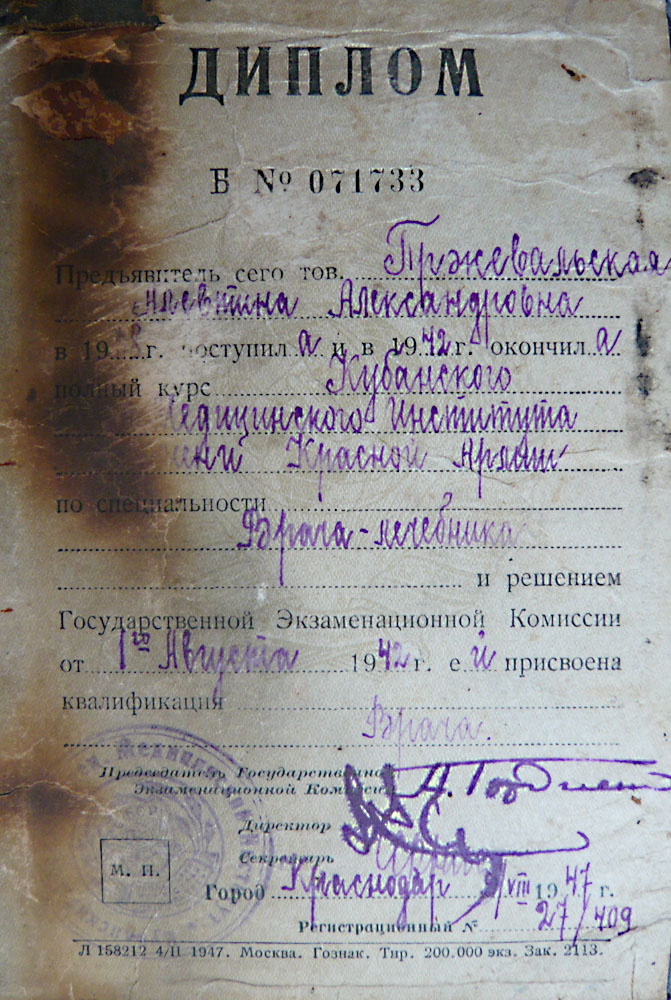 ДИПЛОМ
Б № 071733
Предъявитель сего тов. Пржевальская
Алевтина Александровна
в 19 г. поступила и в 1942 г. окончила
полный курс Кубанского
Медицинского Института
имени Красной Армии
по специальности
Врача-лечебника
и решением
Государственной Экзаменационной Комиссии
от 1го Августа 1942 г. ей присвоена
квалификация
Врача.
Председатель Государственной
Экзаменационной Комиссии
Директор
Секретарь
М. П.
Город Краснодар /VIII 1947 г.
Регистрационный № 27/409
Л 158212 4/II 1947. Москва. Гознак. Тир. 200.000 экз. Зак. 2113.